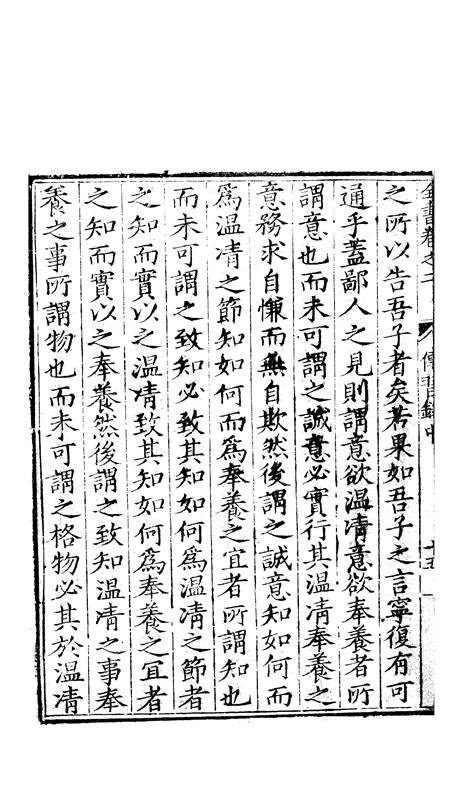 全書卷之二 傳習録中 十五
之所以告吾子者矣若果如吾子之言寧復有可
通乎蓋鄙人之見則謂意欲温凊意欲奉養者所
謂意也而未可謂之誠意必實行其温凊奉養之
意務求自慊而無自欺然後謂之誠意知如何而
爲温凊之節知如何而爲奉養之宜者所謂知也
而未可謂之致知必致其知如何爲温凊之節者
之知而實以之温凊致其知如何爲奉養之宜者
之知而實以之奉養然後謂之致知温凊之事奉
養之事所謂物也而未可謂之格物必其於温凊